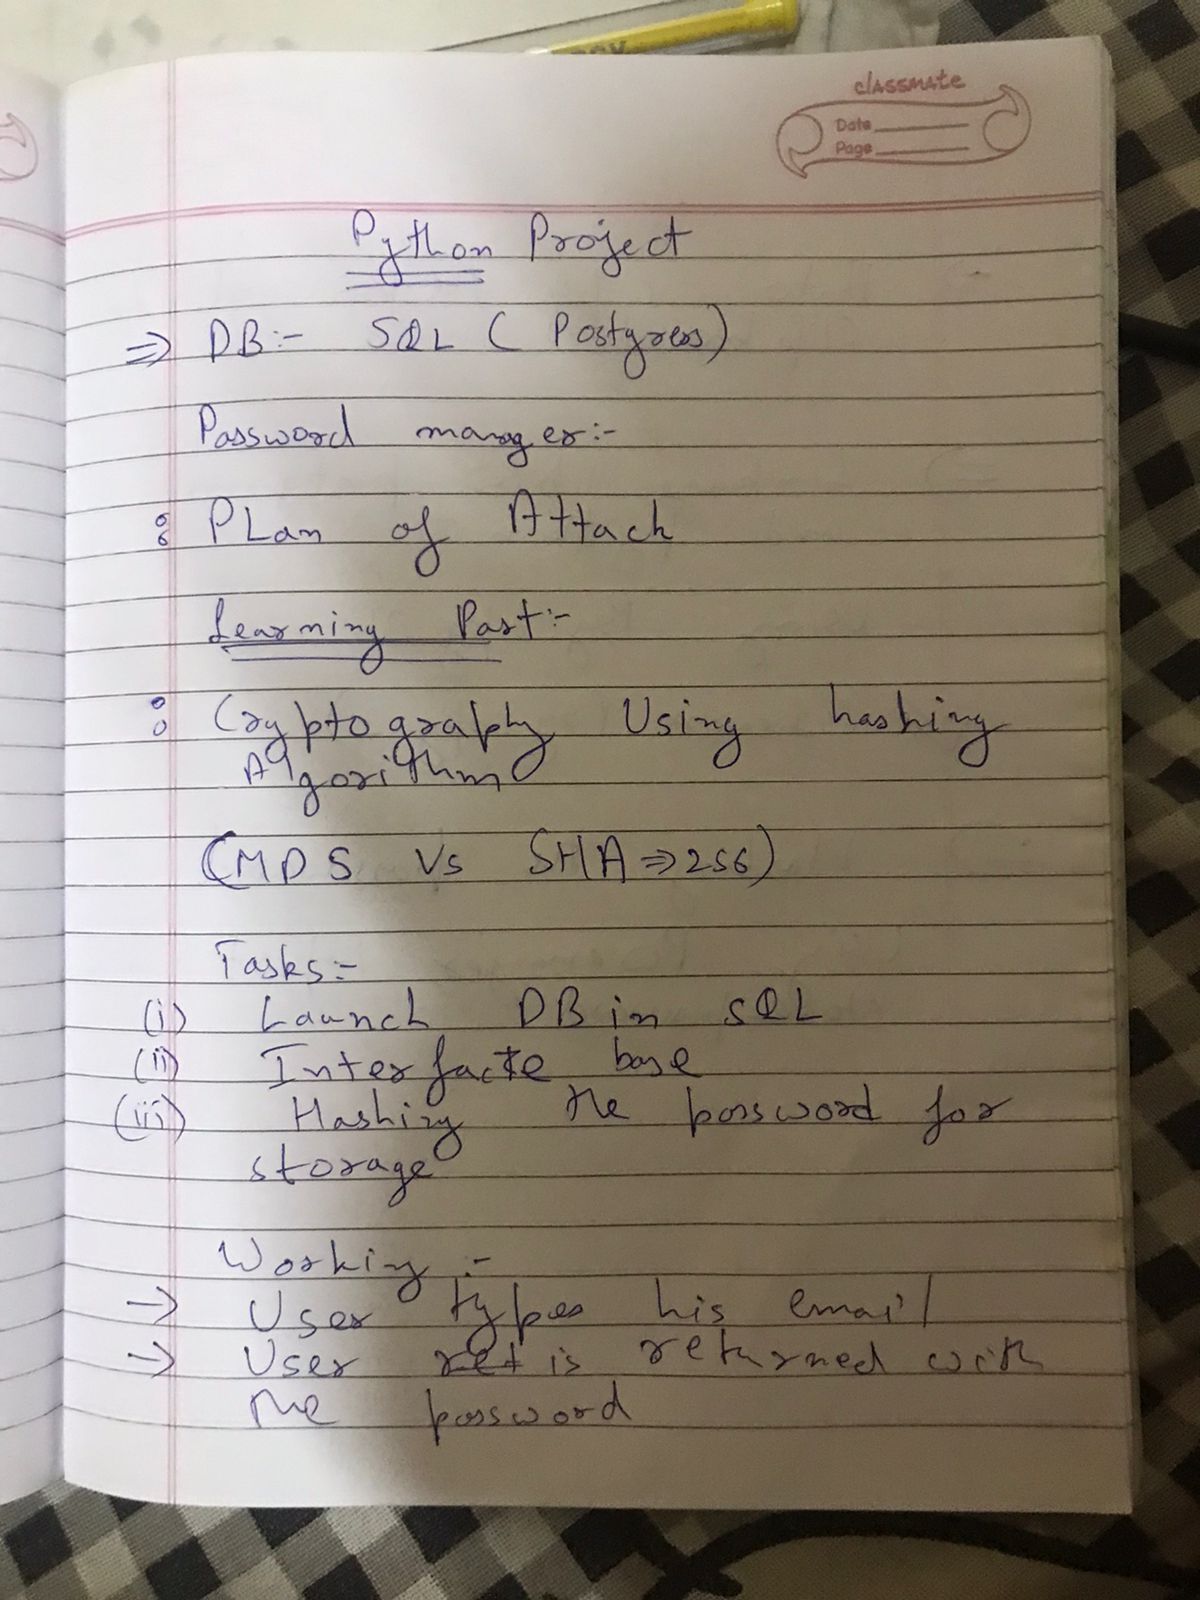 classmate
Date
Page
Python Project
⇒ DB:- SQL ( Postgress)
Password manager:-
: PLan of Attack
Learning Part:-
: Cryptography Using hashing
Algorithm
(MD5 Vs SHA⇒256)
Tasks:-
(i) Launch DB in SQL
(ii) Interfacte base
(iii) Hashing the password for
storage
Working :-
→ User types his email
→ User ret is returned with
the password